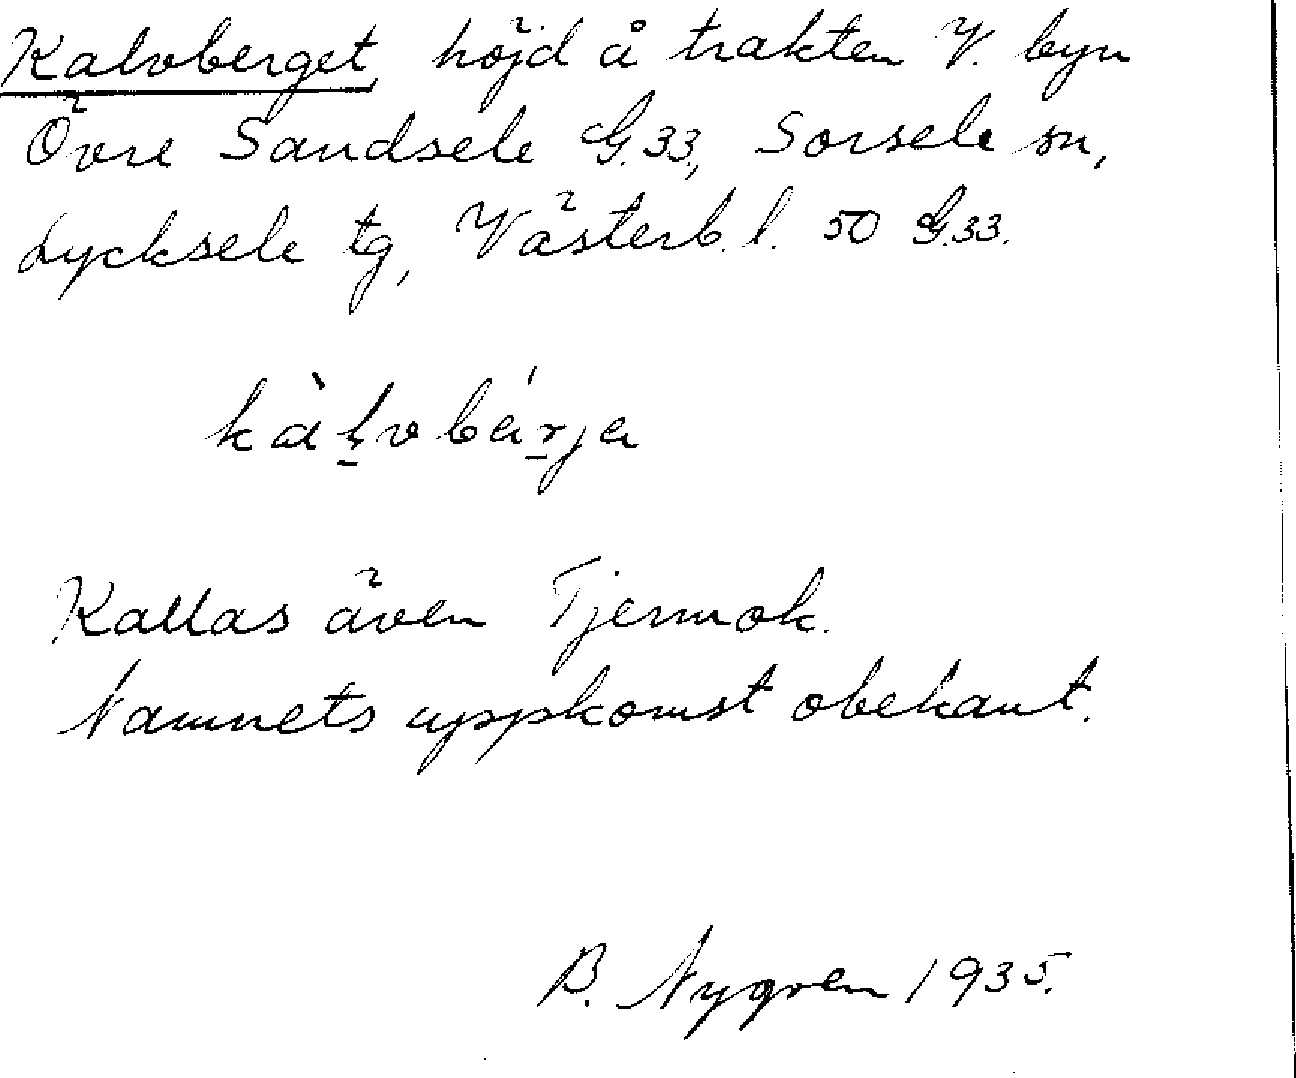 Kalvberget, höjd å trakten V. byn
Övre Sandsele G.33, Sorsele sn,
Lycksele tg, Västerb. l. 50 G.33.
kàl̠vbár̠ja
Kallas även Tjermok.
Namnets uppkomst obekant.
B. Nygren 1935.